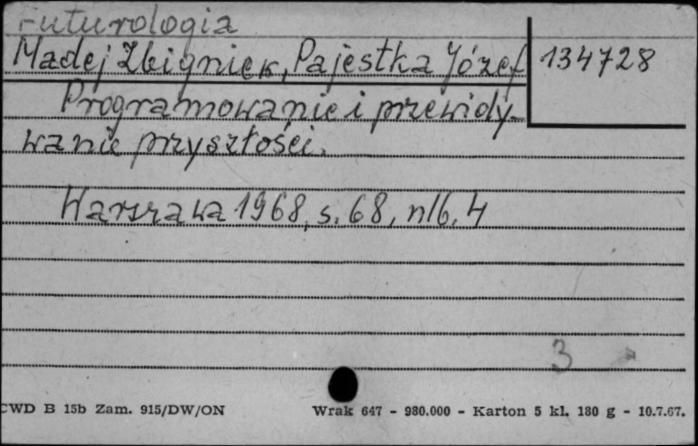 Futurologia
Madej Zbigniew, Pajestka Józef
134728
Programowanie i przewidy-
wanie przyszłości.
Warszawa 1968, s. 68, nlb. 4
3
CWD B 15b Zam. 915/DW/ON
Wrak 647 - 980.000 - Karton 5 kl. 180 g - 10.7.67.